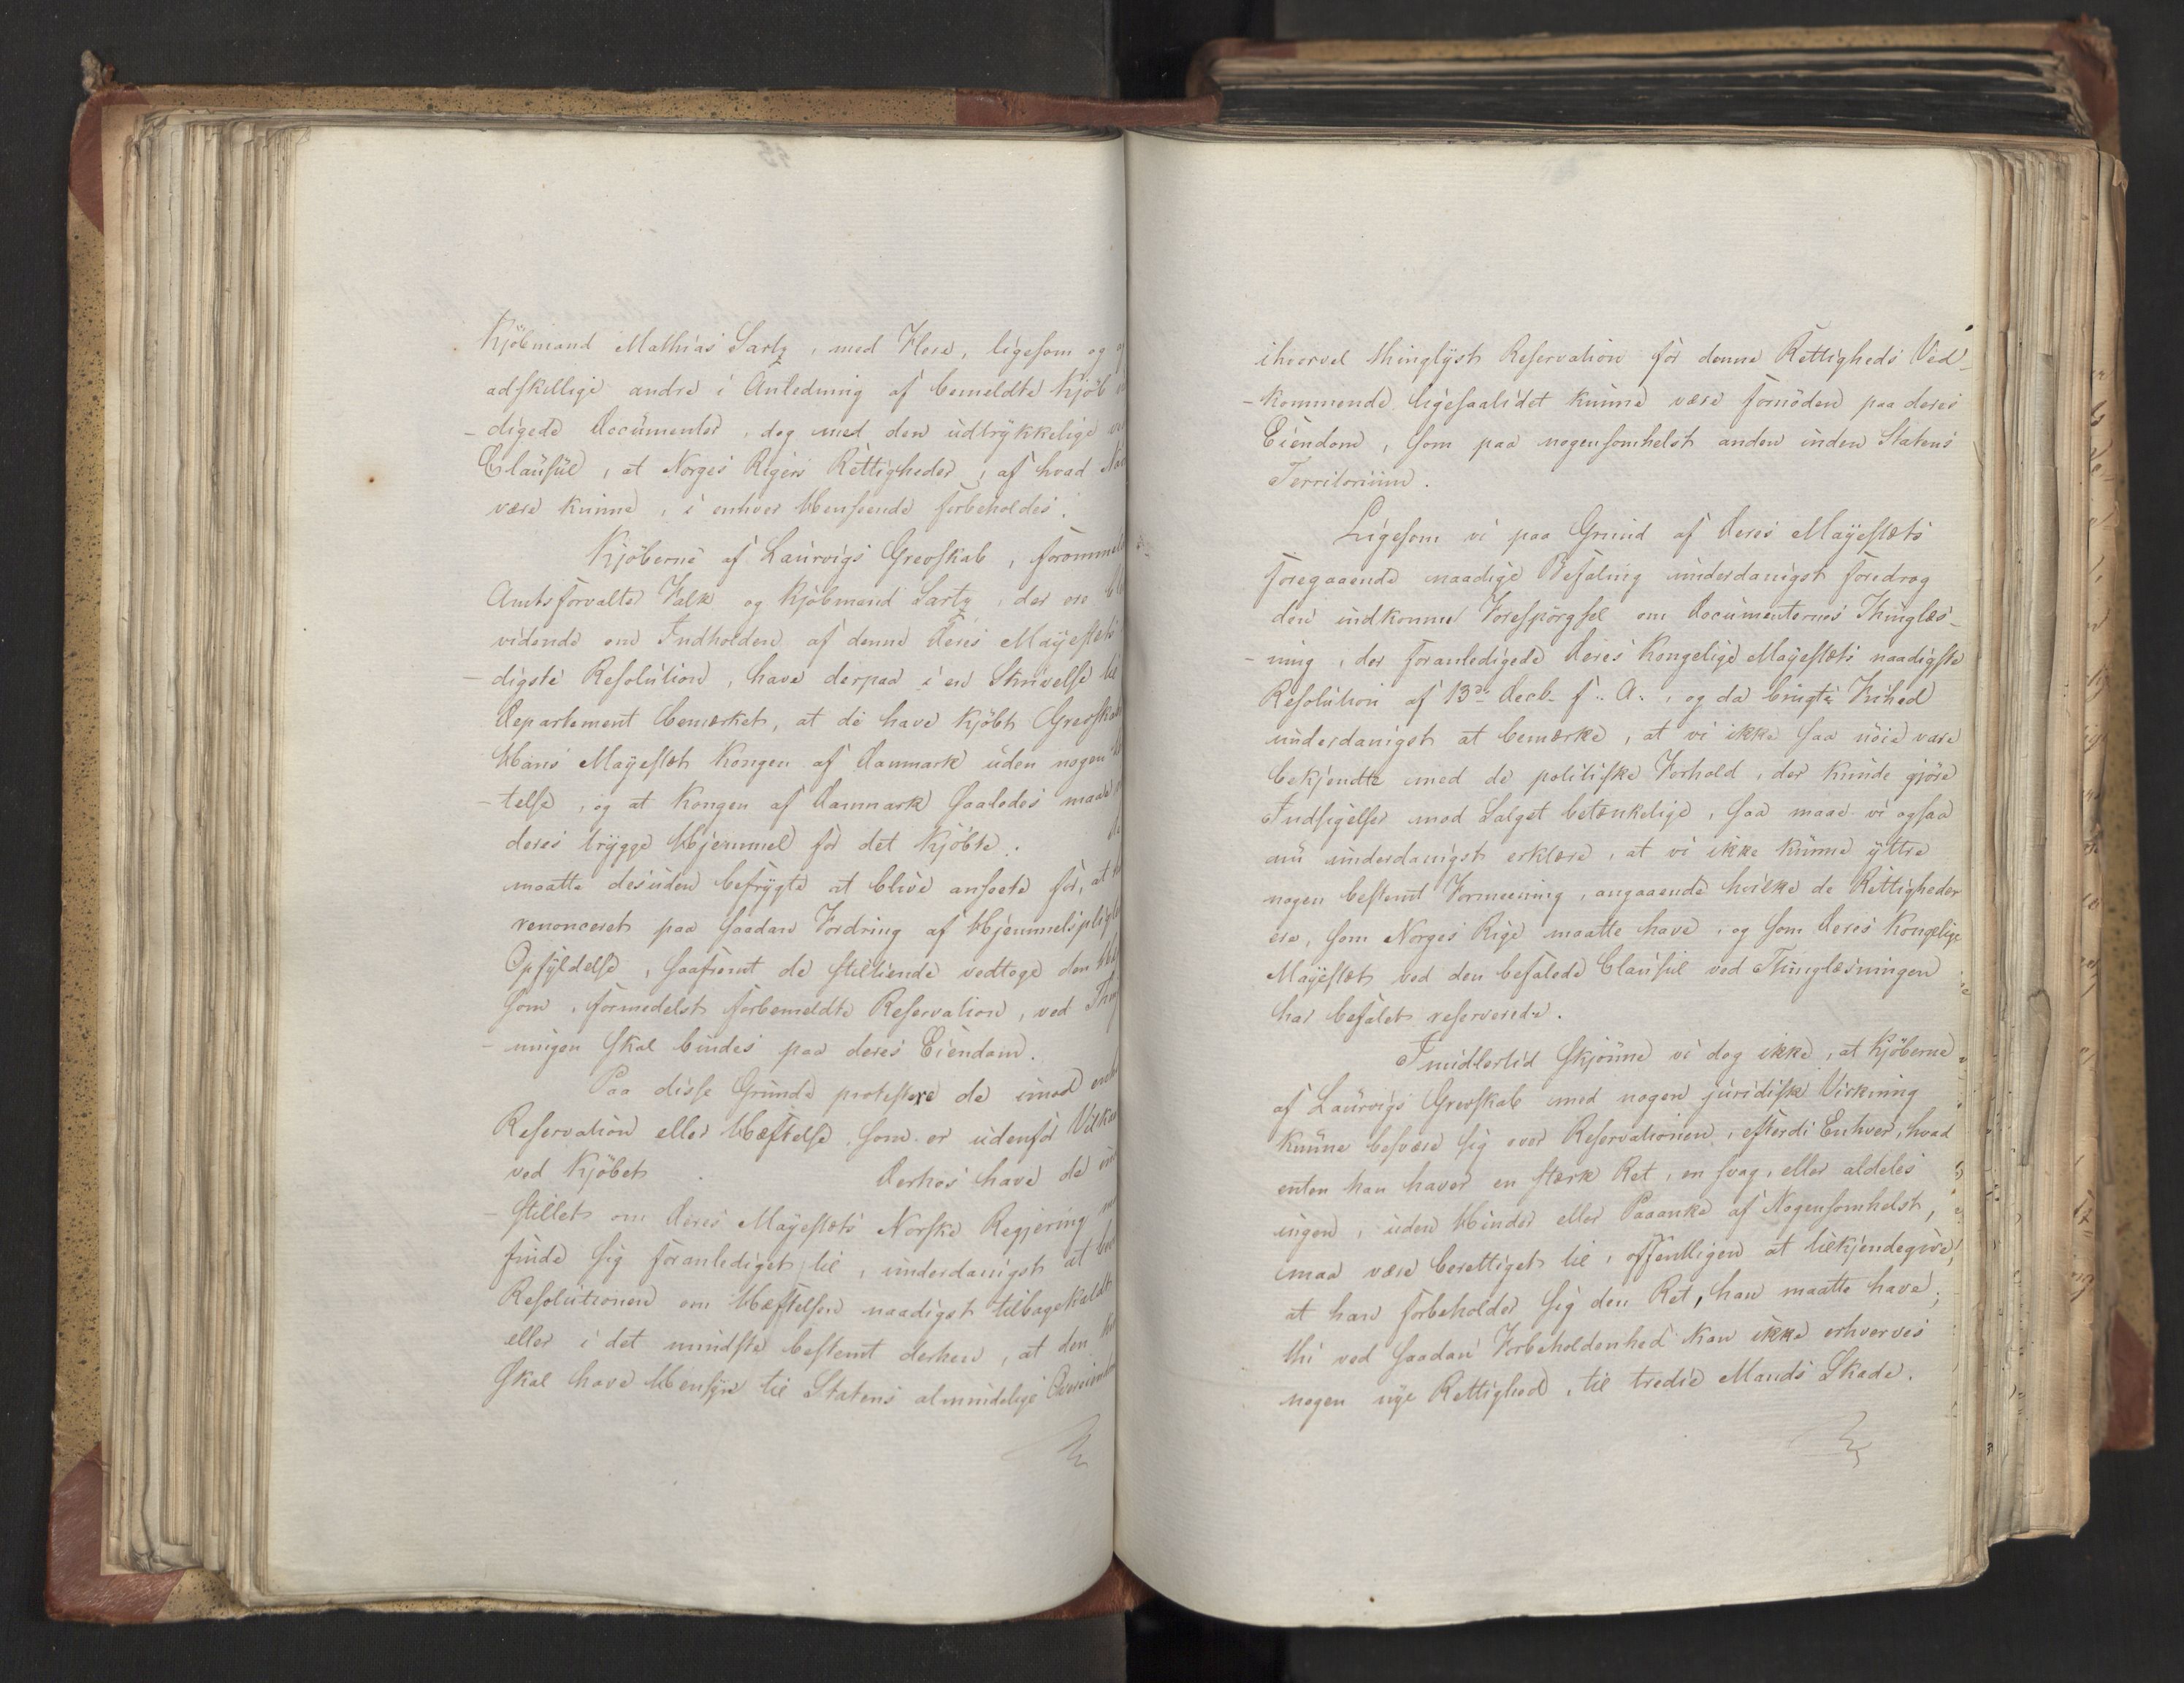 Kjöbmand Mathias Sartz, med Flere, ligesom og
adskillige andre i Anledning af bemeldte Kjöb
-digede Documenter, dog med den udtrykkelige
Clausul, at Norges Riges Rettigheder, af hvad
være kunne, i enhver Henseende forbeholdes.
Kjöberne af Laurvigs Grevskab,
Amtsforvalter Falk og Kjöbmand Sartz, der ere
vidende om Indholden af denne Deres Mayestæts
-digste Resolution, have derpaa i en Skrivelse til
Departement bemærket, at de have kjöbt
Hans Mayestæt Kongen af Danmark uden nogen
-telse, og at Kongen af Danmark saaledes maae
deres trygge Hjemmel for det Kjöbte.
maatte desuden befrygte at blive ansete for, at
renonceret paa saadan Fordring af
Opfyldelse, saafremt de stiltiende vedtoge den
som, formedelst forbemeldte Reservation, ved
-ningen skal bindes paa deres Eiendom.
Paa disse Grunde protestere de imod
Reservation eller Hæftelse som er udenfor
ved Kjöbet. Derhos have de
-stillet om Deres Mayestæts Norske Regjering
finde sig foranlediget til, underdanigst at
Resolutionen om Hæftelsen naadigst tilbagekaldt
eller i det mindste bestemt derhen, at den
skal have Hensyn til Statens almindelige
ihvorvel thinglyst Reservation for denne Rettigheds Ved-
-kommende ligesaalidet kunne være fornöden paa deres
Eiendom, som paa nogensomhelst anden inden Statens
Territorium.
Ligesom vi paa Grund af Deres Mayestæts
foregaaende naadige Befaling underdanigst foredrog
den indkomne Forespörgsel om Documenternes Thinglæs-
-ning, der foranledigede Deres Kongelige Mayestæts naadigste
Resolution af 13de Decb. f. A., og da brugte Frihed
underdanigst at bemærke, at vi ikke saa nöie vare
bekjendte med de politiske Forhold, der kunde gjöre
Indsigelser mod Salget betænkelige, saa maae vi ogsaa
nu underdanigst erklære, at vi ikke kunne yttre
nogen bestemt Formeening, angaaende hvilke de Rettigheder
ere, som Norges Rige maatte have, og som Deres Kongelige
Mayestæt ved den befalede Clausul ved Thinglæsningen
har befalet reserverede.
Imidlertid skjönne vi dog ikke, at Kjöberne
af Laurvigs Grevskab med nogen juridisk Virkning
kunne besvære sig over Reservationen, efterdi Enhver, hvad
enten han haver en stærk Ret, en svag, eller aldeles
ingen, uden Hinder eller Paaanke af Nogensomhelst,
maa være berettiget til, offentligen at tilkjendegive,
at han forbeholder sig den Ret, han maatte have,
thi ved saadan Forbeholdenhed kan ikke erhverves
nogen nye Rettighed, til tredie Mands Skade.